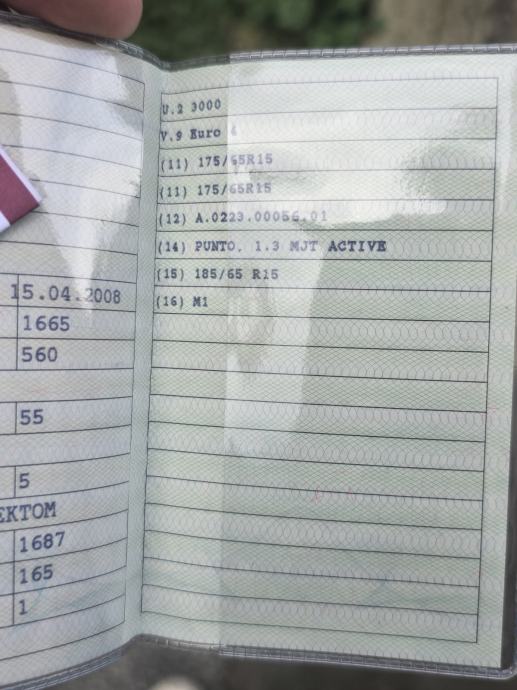 15.04.2008
1665
560
55
5
EKTOM
1687
165
1
U.2 3000
V.9 Euro 4
(11) 175/65R15
(11) 175/65R15
(12) A.0223.00056.01
(14) PUNTO, 1.3 MJT ACTIVE
(15) 185/65 R15
(16) M1